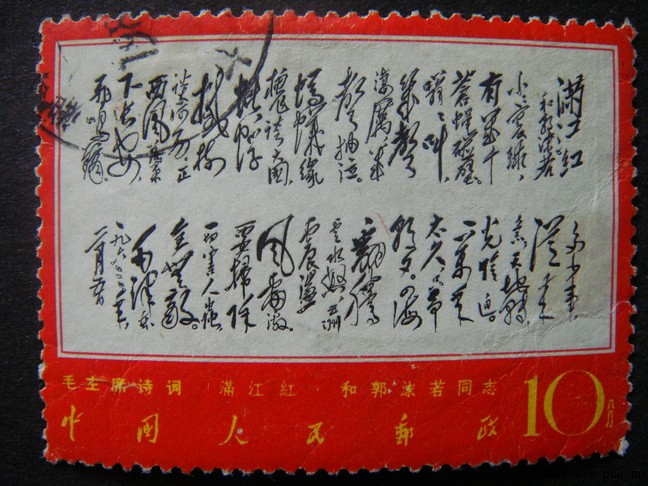 滿江红
和郭沫若
小小寰球,
有几个
苍蝇碰壁。
嗡嗡叫,
几声
凄厉,几
声抽泣。
蚂蚁缘
槐夸大国,
蚍蜉
撼树
谈何易。正
西风落叶
下长安,
飞鸣镝。
多少事,
从来
急。天地转,
光阴迫。
一万年
太久,只争
朝夕。四海
翻腾
云水怒,五洲
震荡
风雷激。
要扫除
一切害人虫,
全无敌。
毛泽东
一九六三年
二月五日
毛主席诗词 滿江紅 和郭沫若同志
中國人民郵政 10分